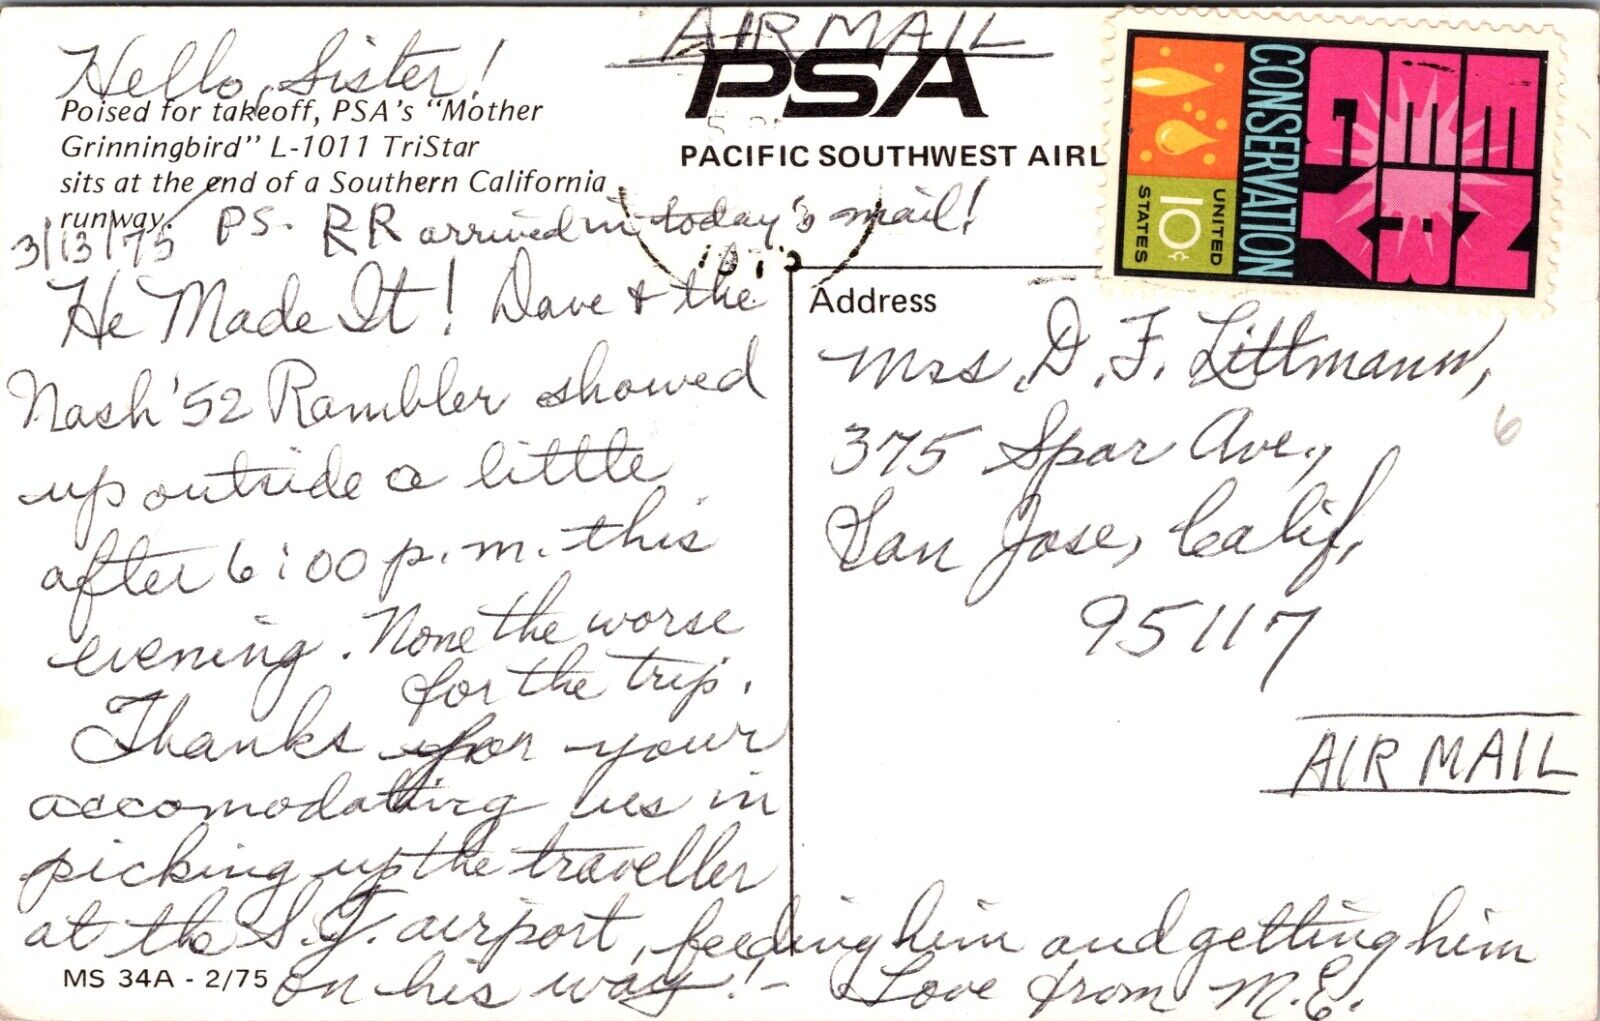 AIR MAIL
Hello, Sister!
Poised for takeoff, PSA's "Mother
Grinningbird" L-1011 TriStar
sits at the end of a Southern California
runway.
3/13/75 PS. RR arrived in today's mail!
He Made It! Dave & the
Nash '52 Rambler showed
up outside a little
after 6:00 p.m. this
evening. None the worse
for the trip.
Thanks for your
accomodating us in
picking up the traveller
at the S.F. airport, feeding him and getting him
on his way! - Love from M.E.
MS 34A - 2/75
PSA
PACIFIC SOUTHWEST AIRL
ENERGY
CONSERVATION
UNITED
STATES
10¢
Address
Mrs. D. F. Littmann,
375 Spar Ave.,
San Jose, Calif.
95117
6
AIR MAIL